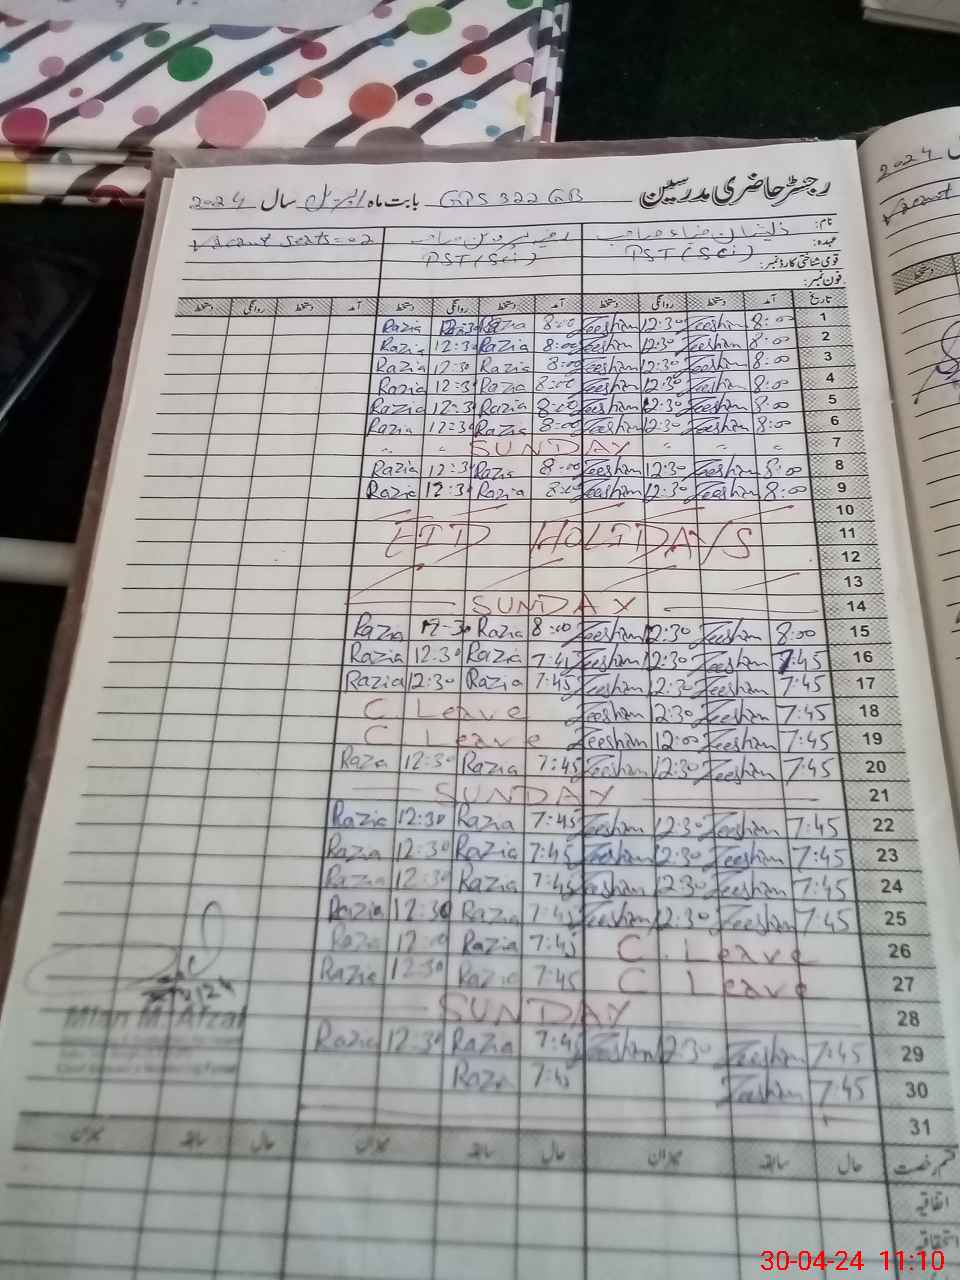 رجسٹر حاضری مدرسین GPS 322 GB بابت ماہ اپریل سال 2024
2024
نام: ذیشان ضیاء صاحب
Vacant seats = 02
عہدہ: PST (Sci) PST (Sci)
قومی شناختی کارڈ نمبر:
فون نمبر:
تاریخ آمد دستخط روانگی دستخط آمد دستخط روانگی دستخط آمد دستخط روانگی دستخط
1 8:00 Zeeshan 12:30 Zeeshan 8:00 Razia 12:30 Razia
2 8:00 Zeeshan 12:30 Zeeshan 8:00 Razia 12:30 Razia
3 8:00 Zeeshan 12:30 Zeeshan 8:00 Razia 12:30 Razia
4 8:00 Zeeshan 12:30 Zeeshan 8:00 Razia 12:30 Razia
5 8:00 Zeeshan 12:30 Zeeshan 8:00 Razia 12:30 Razia
6 8:00 Zeeshan 12:30 Zeeshan 8:00 Razia 12:30 Razia
7 SUNDAY
8 8:00 Zeeshan 12:30 Zeeshan 8:00 Razia 12:30 Razia
9 8:00 Zeeshan 12:30 Zeeshan 8:00 Razia 12:30 Razia
10
11 EID HOLIDAYS
12
13
14 SUNDAY
15 8:00 Zeeshan 12:30 Zeeshan 8:00 Razia 12:30 Razia
16 7:45 Zeeshan 12:30 Zeeshan 7:45 Razia 12:30 Razia
17 7:45 Zeeshan 12:30 Zeeshan 7:45 Razia 12:30 Razia
18 7:45 Zeeshan 12:30 Zeeshan C. Leave
19 7:45 Zeeshan 12:00 Zeeshan C Leave
20 7:45 Zeeshan 12:30 Zeeshan 7:45 Razia 12:30 Razia
21 SUNDAY
22 7:45 Zeeshan 12:30 Zeeshan 7:45 Razia 12:30 Razia
23 7:45 Zeeshan 12:30 Zeeshan 7:45 Razia 12:30 Razia
24 7:45 Zeeshan 12:30 Zeeshan 7:45 Razia 12:30 Razia
25 7:45 Zeeshan 12:30 Zeeshan 7:45 Razia 12:30 Razia
26 C. Leave 7:45 Razia 12:00 Razia
27 C Leave 7:45 Razia 12:30 Razia
28 SUNDAY
29 7:45 Zeeshan 12:30 Zeeshan 7:45 Razia 12:30 Razia
30 7:45 Zeeshan 7:45 Razia
31
Mian M. Afzal
قسم رخصت حال سابقہ میزان حال سابقہ میزان حال سابقہ میزان
اتفاقیہ
استحقاقیہ
30-04-24 11:10